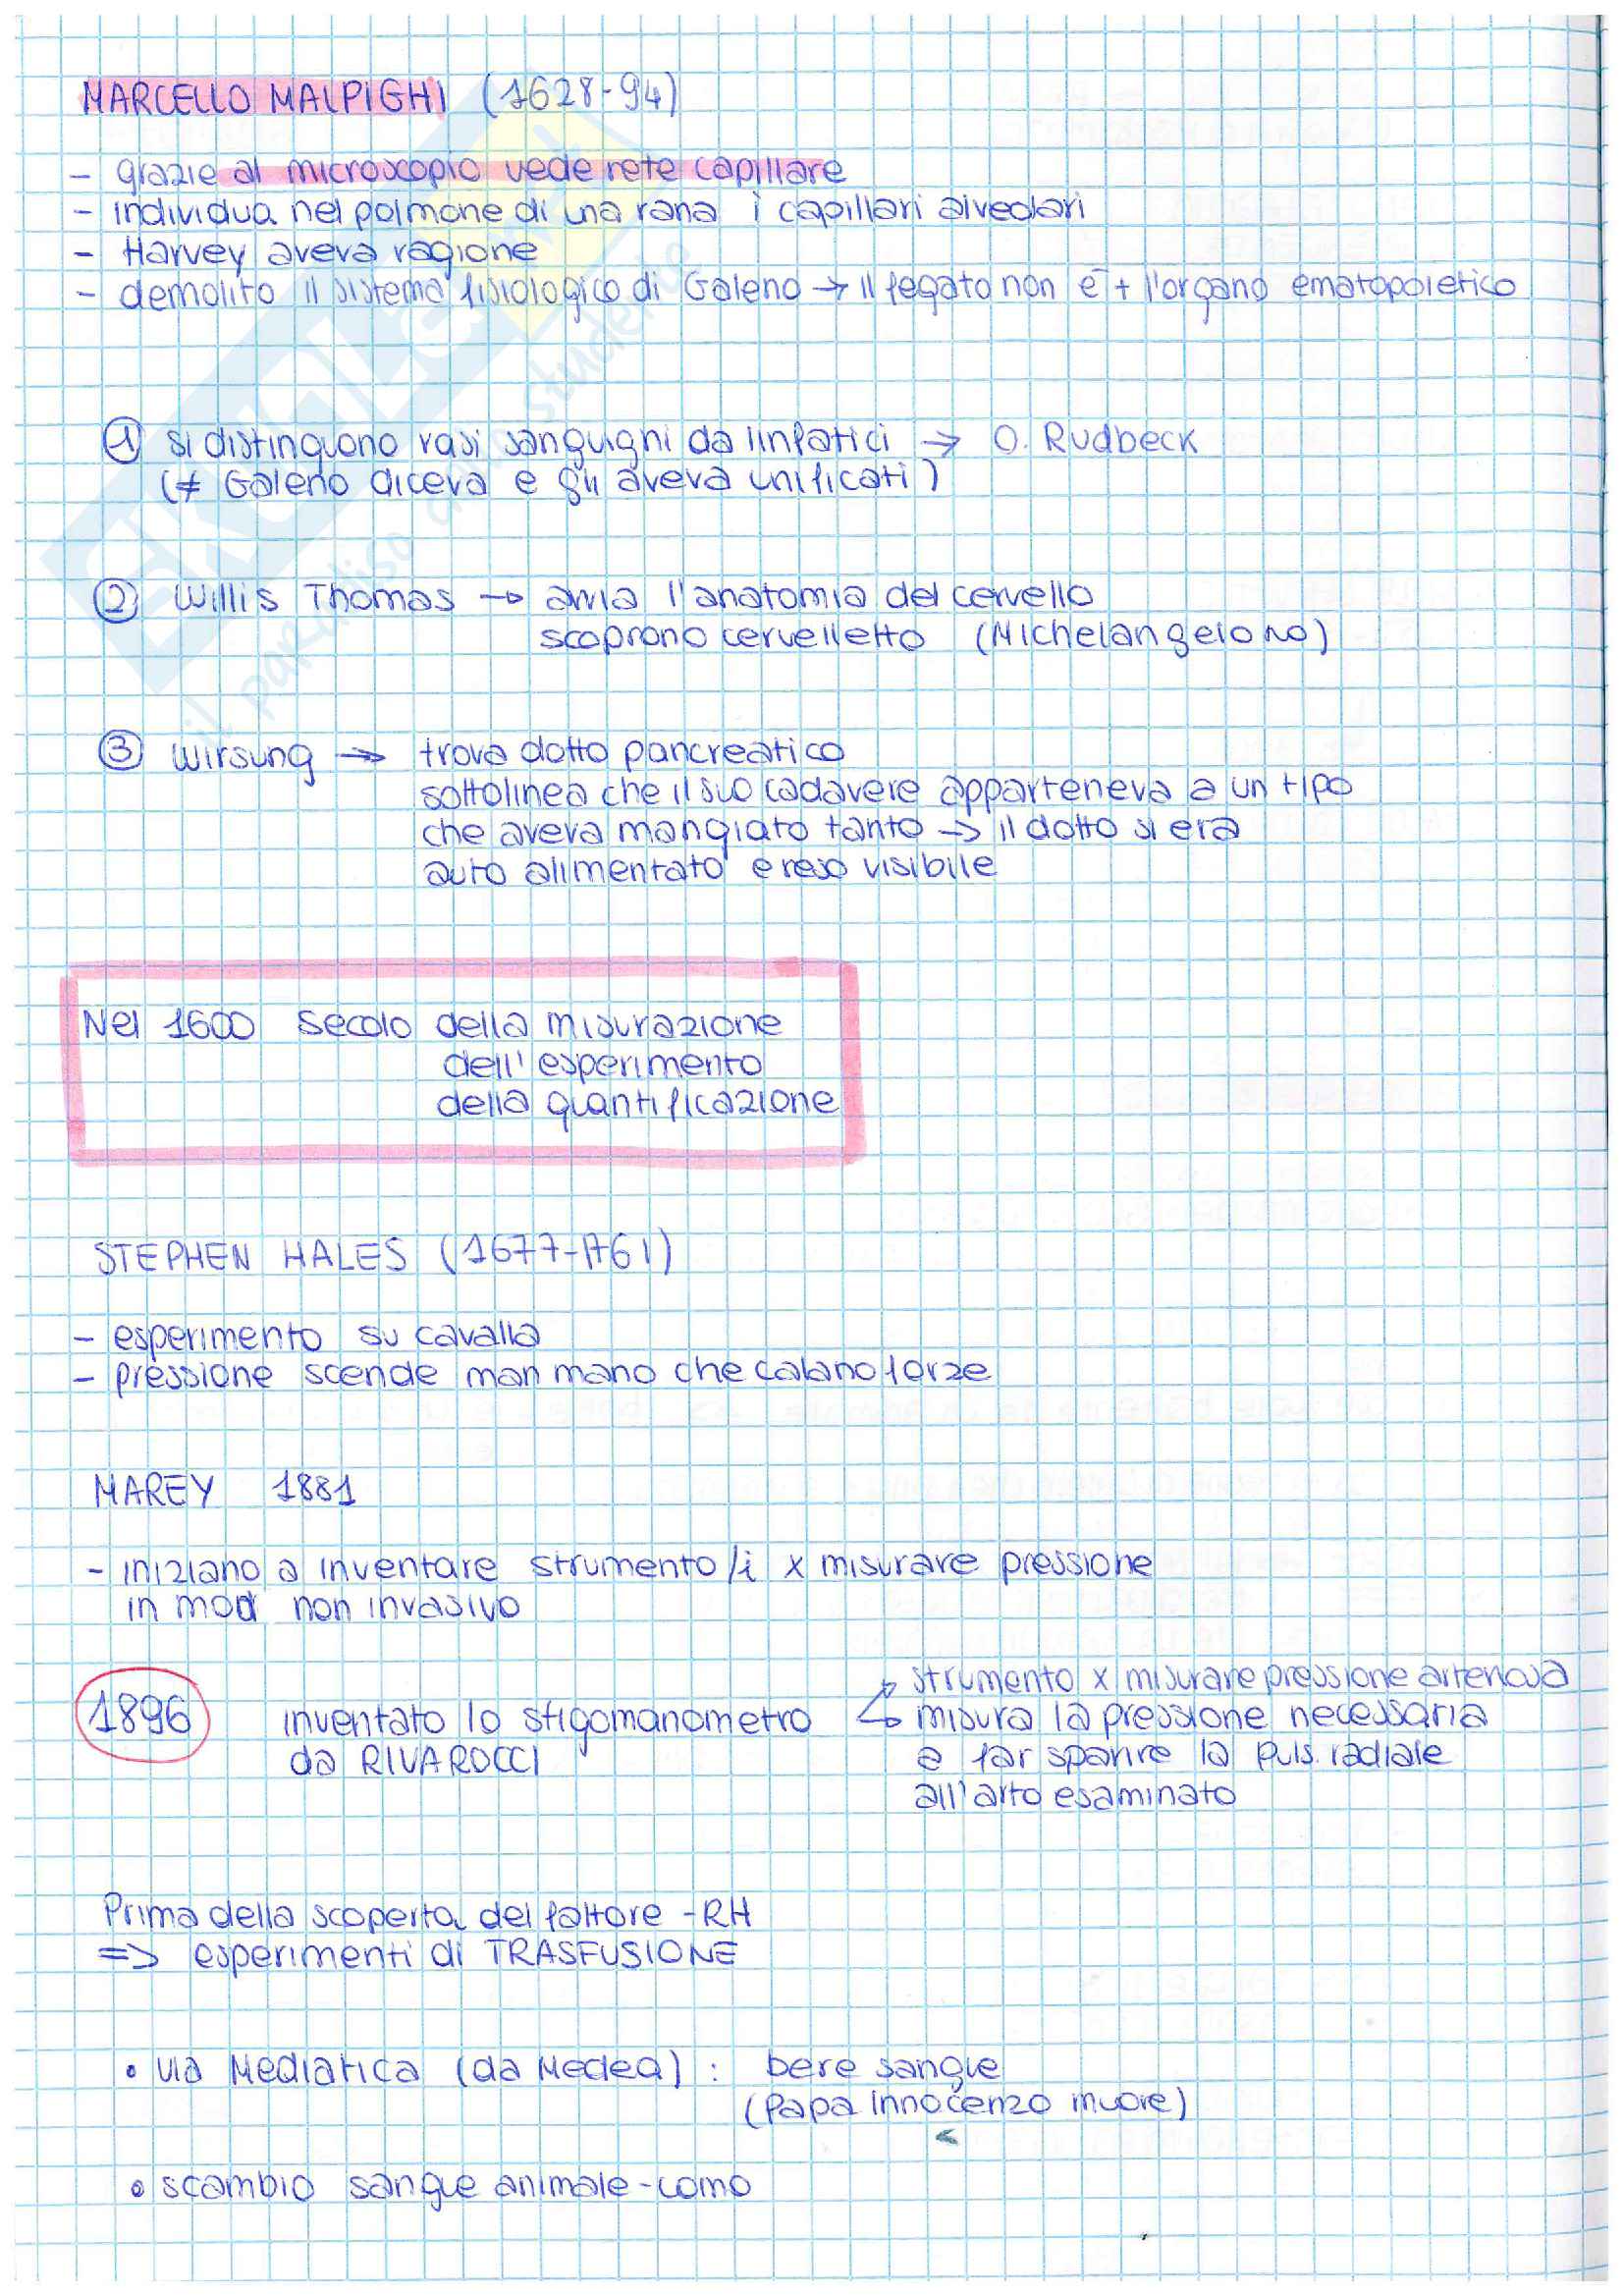 MARCELLO MALPIGHI (1628-94)
- grazie al microscopio vede rete capillare
- individua nel polmone di una rana i capillari alveolari
- Harvey aveva ragione
- demolito il sistema fisiologico di Galeno → il fegato non è + l'organo ematopoietico
① si distinguono vasi sanguigni da linfatici → O. Rudbeck
(≠ Galeno diceva e gli aveva unificati)
② Willis Thomas → avvia l'anatomia del cervello
scoprono cervelletto (Michelangelo no)
③ Wirsung → trova dotto pancreatico
sottolinea che il suo cadavere apparteneva a un tipo
che aveva mangiato tanto → il dotto si era
auto alimentato e reso visibile
Nel 1600 secolo della misurazione
dell'esperimento
della quantificazione
STEPHEN HALES (1677-1761)
- esperimento su cavalla
- pressione scende man mano che calano forze
MAREY 1881
- iniziano a inventare strumento/i x misurare pressione
in mod non invasivo
1896 inventato lo sfigomanometro
da RIVA ROCCI
strumento x misurare pressione arteriosa
misura la pressione necessaria
a far sparire la puls. radiale
all'arto esaminato
Prima della scoperta del fattore -RH
=> esperimenti di TRASFUSIONE
• via Mediatica (da Medea) : bere sangue
(Papa Innocenzo muore)
• scambio sangue animale-uomo
SKUOLA.net
il paradiso dello studente